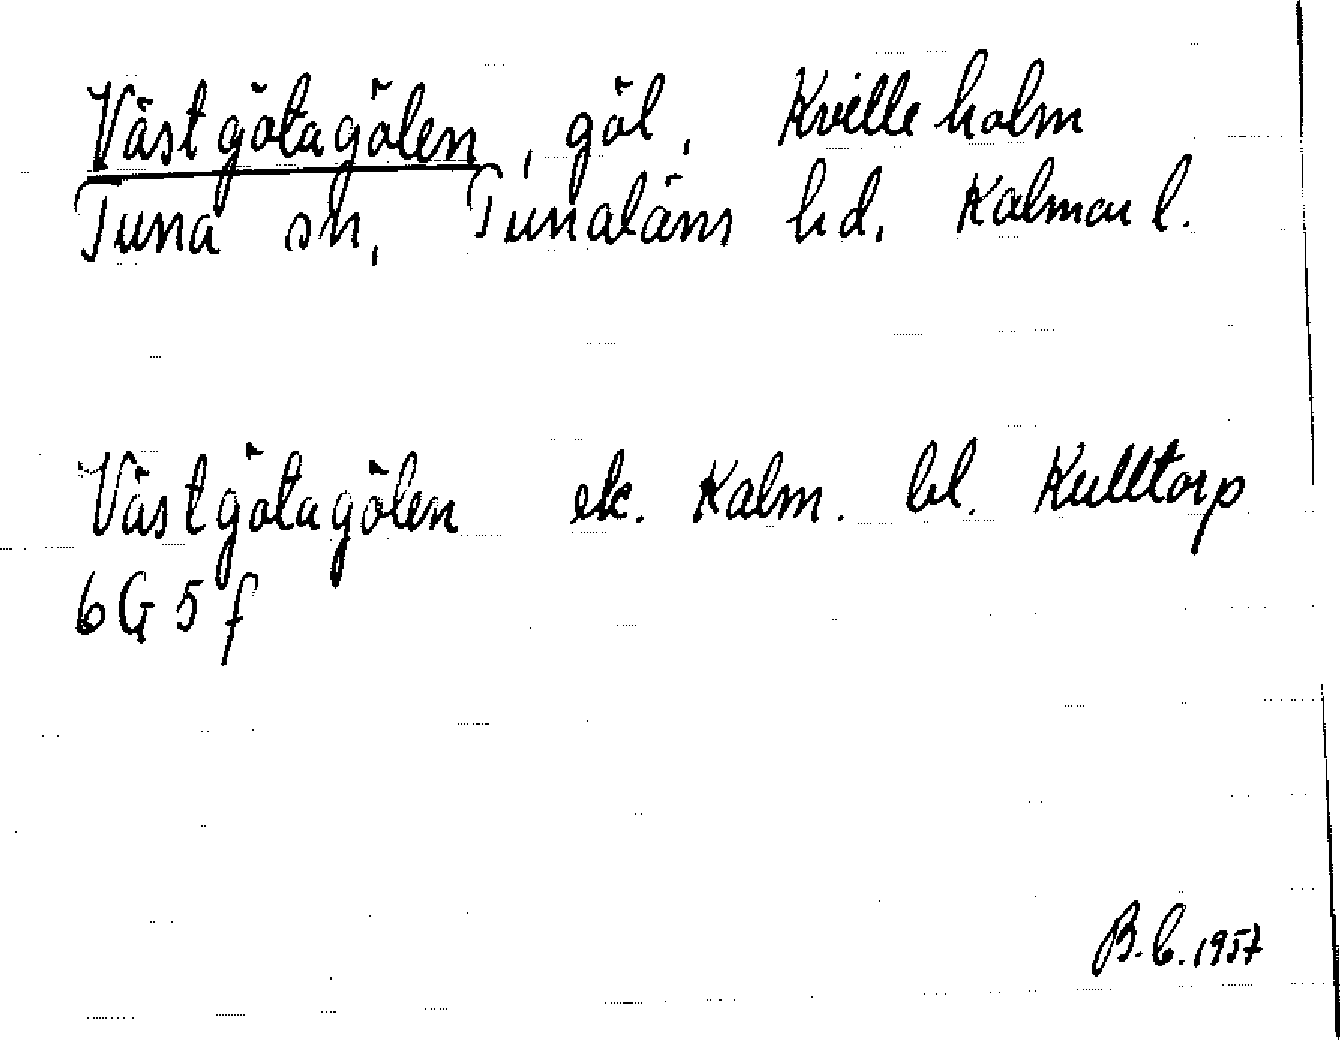 Västgötagölen, göl, Kvilleholm
Tuna sn, Tunaläns hd. Kalmar l.
Västgötagölen ek. Kalm. bl. Kulltorp
6G5f
B.C. 1957